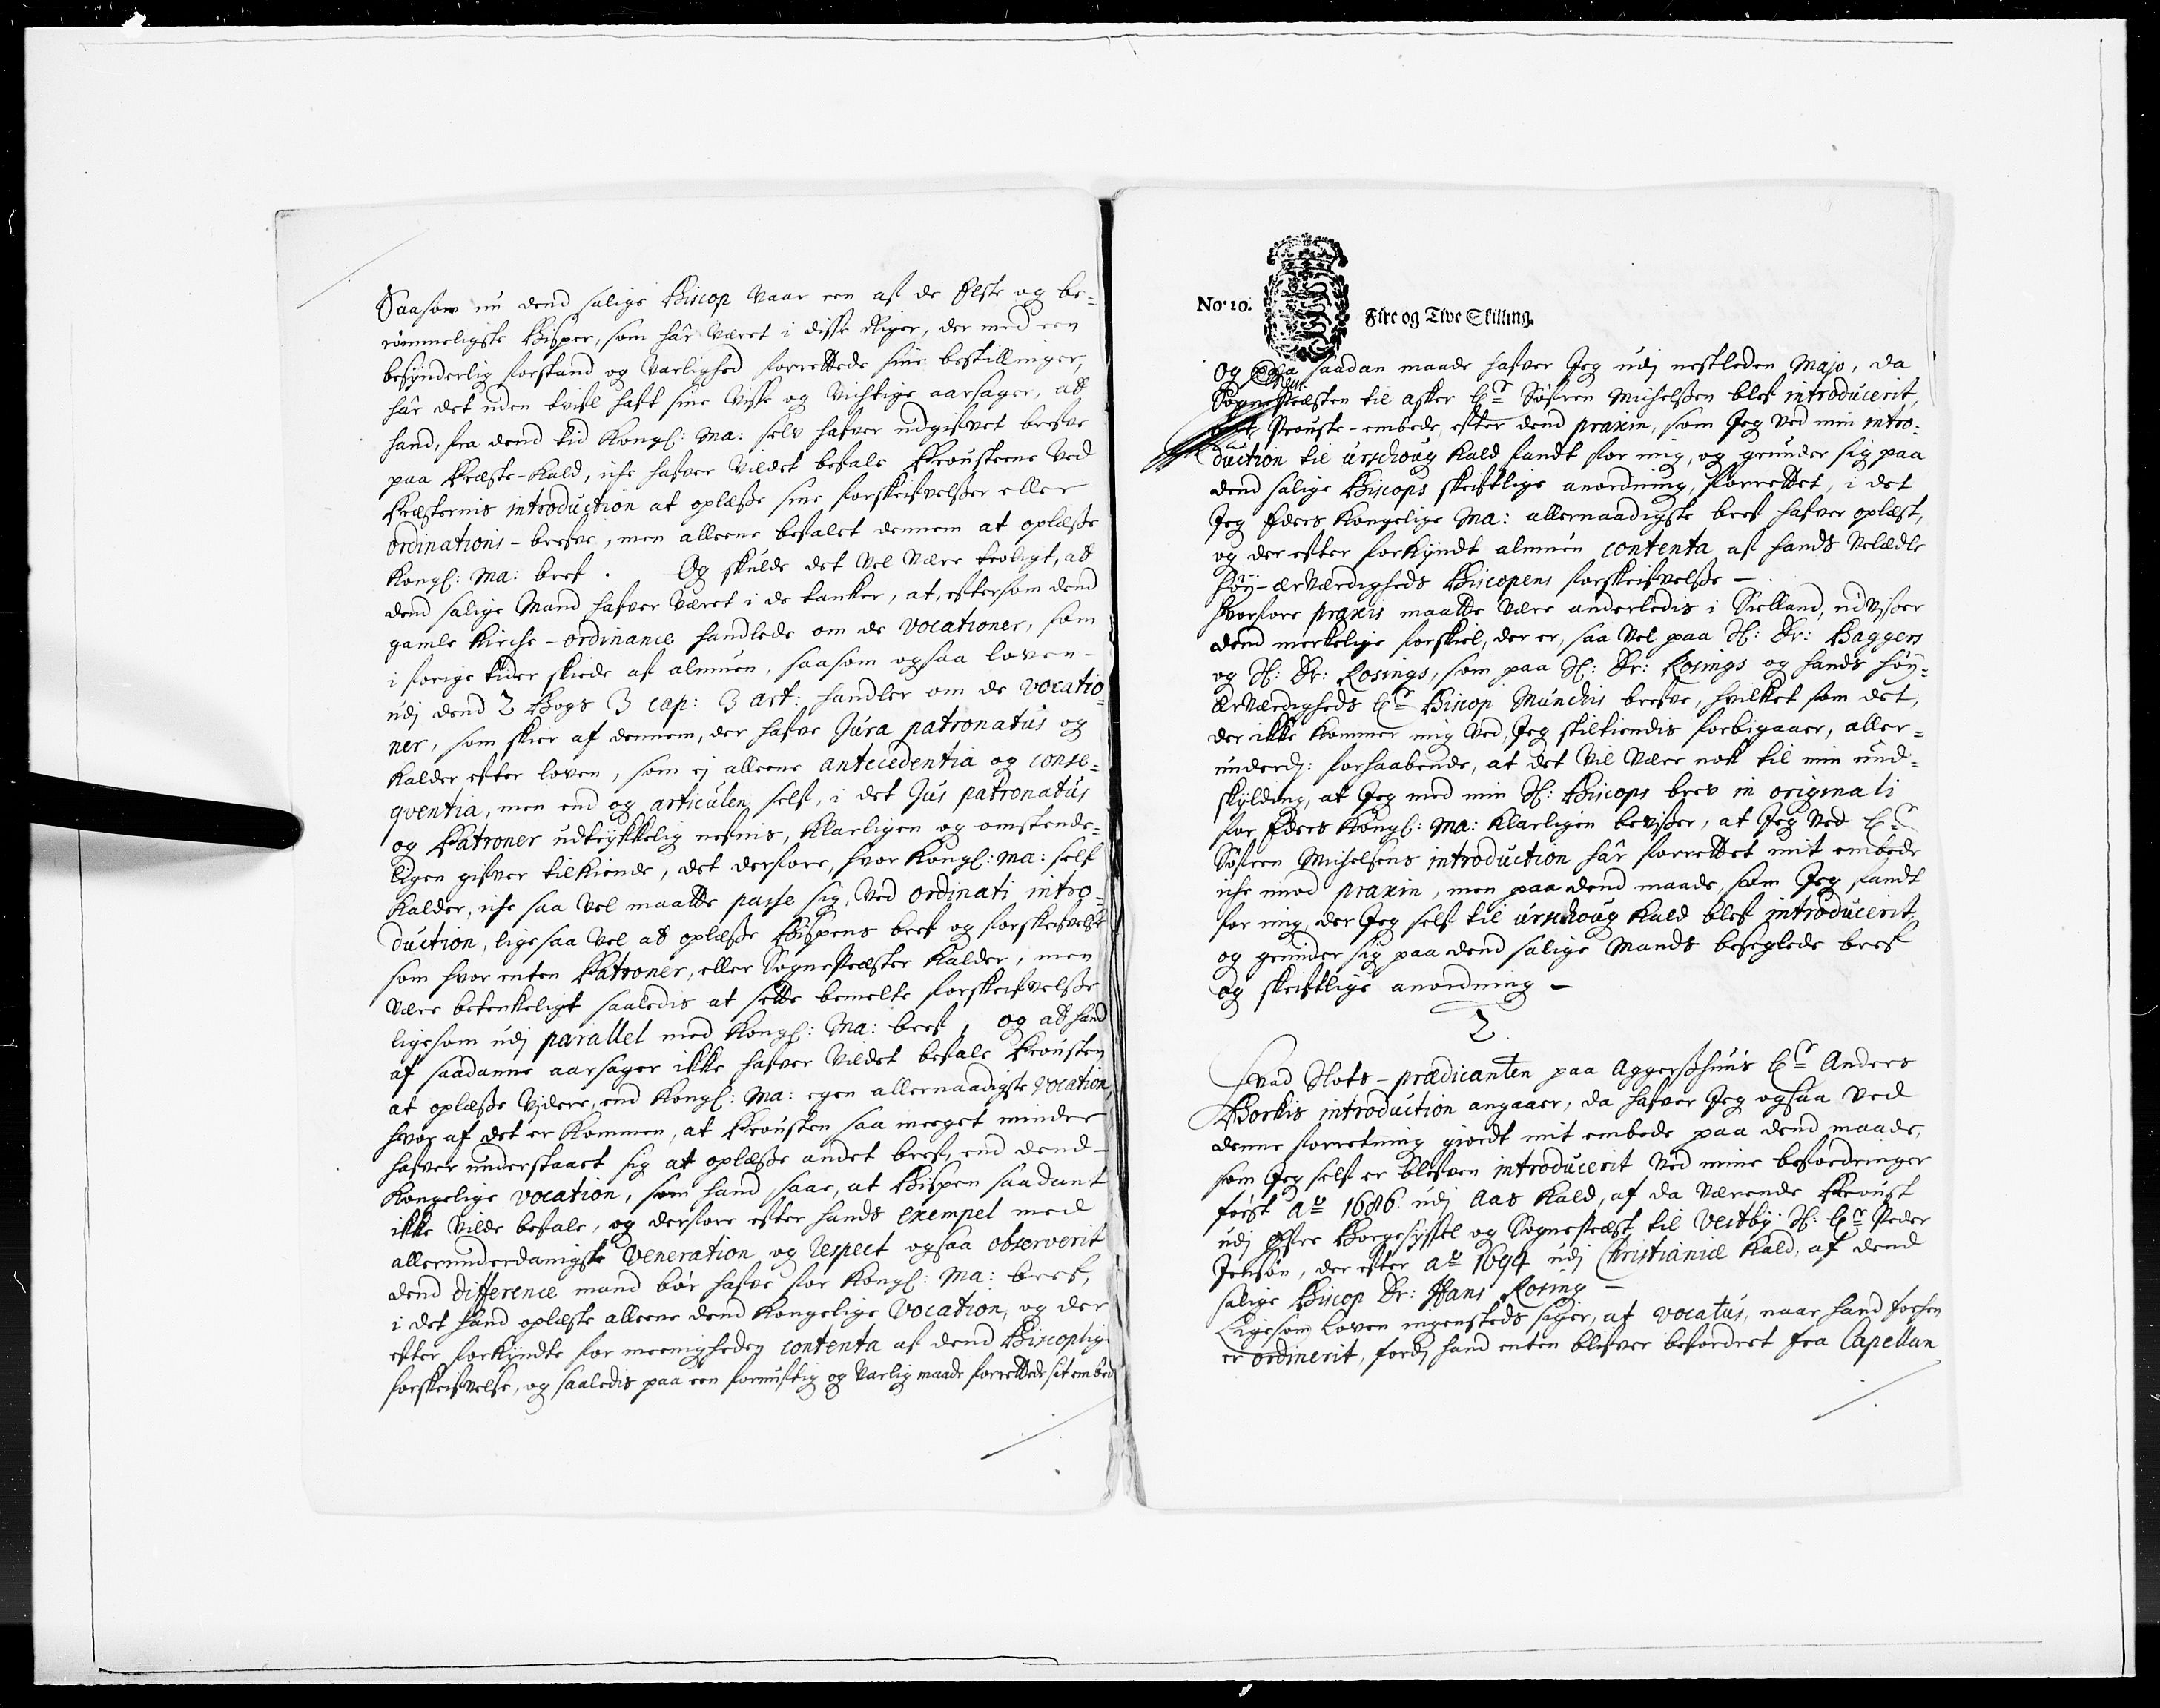 Saasom nu dend salige Biscop vaar een af de Elste og be-
römmeligste Bisper, som hâr været i disse Riger, der med een
besynderlig forstand og varlighed forrettede sine bestillinger,
hâr det uden tvifl haft sine visse og vichtige aarsager, att
hand, fra dend tid Kongl: Ma: selv hafver udgifvet brefve
paa Præste-Kald, iche hafver vildet befale Prousterne ved
Præsternis introduction at oplæsse sine forskrifvelsser eller
ordinations-brefve, men alleene befalet dennem at oplæsse
Kongl: Ma: bref. Og skulde det vel være troligt, att
dend salige Mand hafver været i de tanker, at, eftersom dend
gamle Kirche-ordinance handlede om de vocationer, som
i forige tider skede af almuen, saasom ogsaa loven
udj dend 2 Bogs 3 cap: 3 art: handler om de vocatio-
ner, som skeer af dennem, der hafve Jura patronatus og
kalder efter loven, som ej alleene antecedentia og conse-
qventia, men end og articulen self, i det Jus patronatus
og Patroner udtrykkelig nefnis, klarligen og omstende-
ligen gifver tilkiende, det derfore, hvor Kongl: Ma: self
kalder, iche saa vel maatte passe sig, ved ordinati intro-
duction, ligesaa vel at oplæsse Bispens bref og forskrifvelse
som hvor enten Patroner, eller Sognepræster kalder, men
være betenkeligt saaledis at sette bemelte forskrifvelsse
ligesom udj parallel med Kongl: Ma: bref, og att hand
af saadanne aarsager ikke hafver vildet befale Prousten
at oplæsse videre, end Kongl: Ma: egen allernaadigste vocation,
hvor af det er kommen, at Prousten saa meeget mindre
hafver understaaet sig at oplæsse andet bref, end dend
Kongelige vocation, som hand saae, at Bispen saadant
ikke vilde befale, og derfore efter hands exempel med
allerunderdanigste veneration og respect ogsaa observerit
dend difference mand bör hafve for Kongl: Ma: bref,
i det hand oplæste alleene dend Kongelige vocation, og der
efter forkyndte for meenigheden contenta af dend Biscoplige
forskrifvelse, og saaledis paa een fornuftig og varlig maade forrettede sit embede
No. 20.
Fire og Tive Skilling.
Og paa saadan maade hafver Jeg udj nestleden Majo, da
Sognepræsten til Asker Er Söfren Michelssen blef introducerit,
Prouste-embede, efter dend praxin, som Jeg ved min intro-
duction til urschoug Kald fandt for mig, og grunder sig paa
dend salige Biscops skriftlige anordning, forrettet, i det
Jeg Eders Kongelige Ma: allernaadigste bref hafver oplæst,
og der efter forkyndt almuen contenta af hands velædle
höy-ærværdigheds Biscopens forskrifvelsse –
hvorfore praxis maatte være anderledis i Sielland, udvjser
dend merkelige forskiel, der er, saa vel paa H: Dr: Baggers
og H: Dr: Rosings, som paa H: Dr: Rosings og hands höy-
ærværdigheds Er Biscop Munchis brefve, hvilket som det,
der ikke kommer mig ved, Jeg stiltiendis forbigaaer, aller-
underd: forhaabende, at det vil være nok til min und-
skylding, at Jeg med min H: Biscops brev in originali
for Eders Kongl: Ma: klarligen bevjser, at Jeg ved Er
Söfren Michelsens introduction hâr forrettet mit embede
iche imod praxin, men paa dend maade, som Jeg fandt
for mig, der Jeg self til urschoug Kald blef introducerit,
og grunder sig paa dend salige Mands beseglede bref
og skriftlige anordning –
2
Hvad Slots-prædicanten paa Aggersshuus Er Anders
Borkis introduction angaaer, da hafver Jeg ogsaa ved
denne forretning giordt mit embede paa dend maade,
som Jeg self er blefven introducerit ved mine befordringer
först Ao 1686 udj Aas Kald, af da værende Proust
udj Öfre Borgesyssel og Sognepræst til Vestby H: Er Peder
Jensön, der efter Ao 1694 udj Christianiæ Kald, af dend
salige Biscop Dr: Hans Rosing –
Ligesom loven ingensteds siger, at vocatus, naar hand forhen
er ordinerit, fordj hand enten blifver befordret fra Capellan